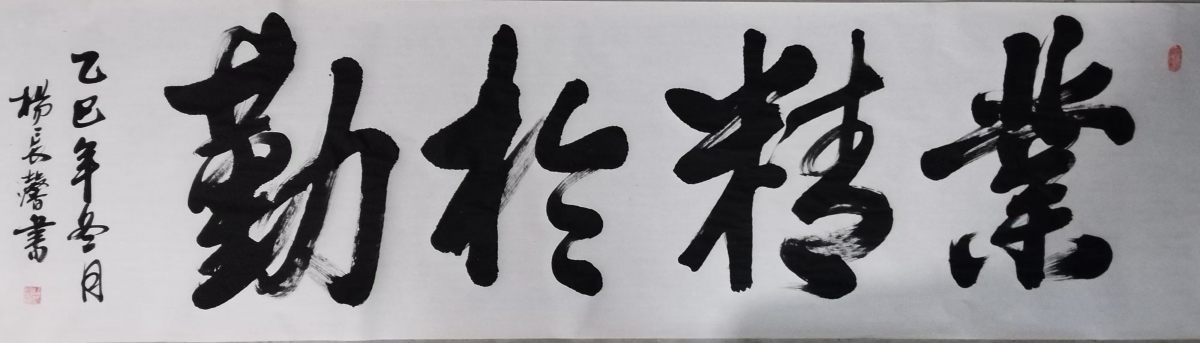 業精於勤
乙巳年冬月
楊長馨書